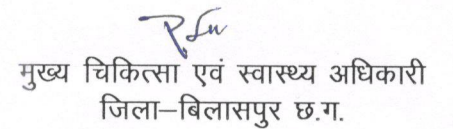 मुख्य चिकित्सा एवं स्वास्थ्य अधिकारी
जिला–बिलासपुर छ.ग.